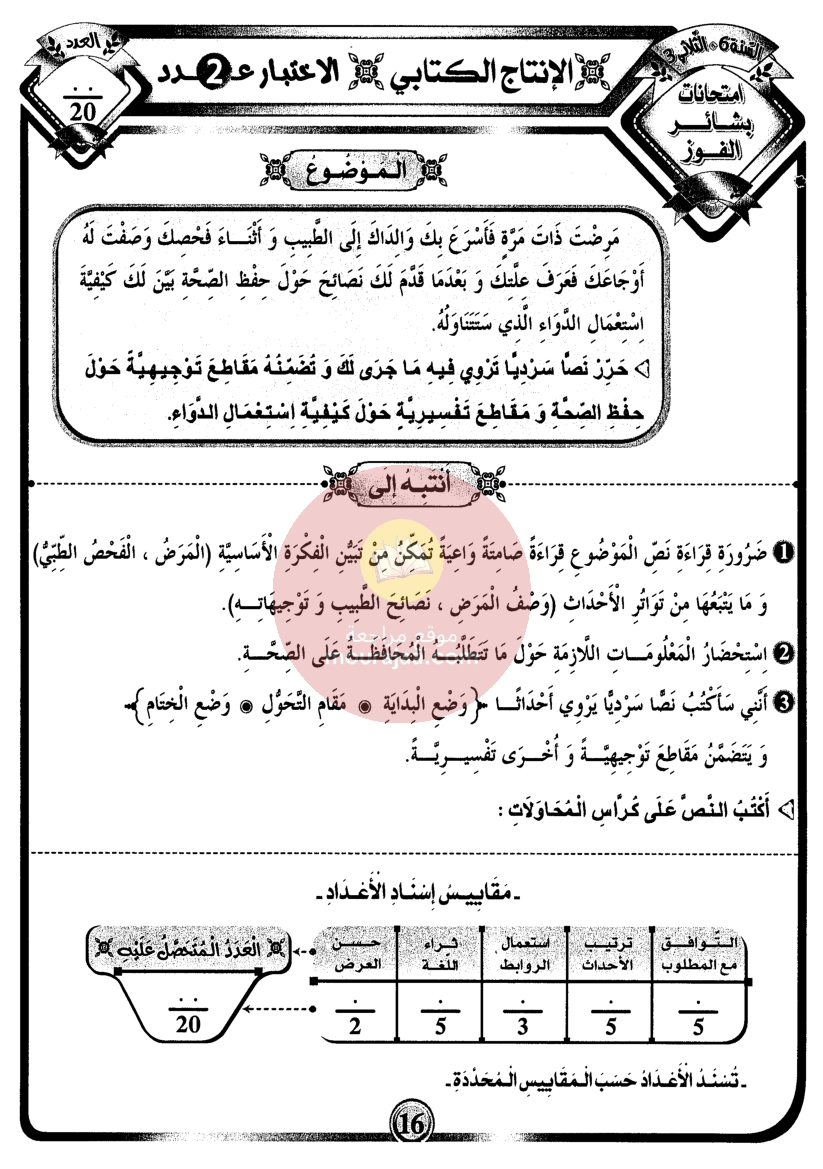 السّنة 6 - الثّلاثي 3
امتحانات
بشائر
الفوز
الإنتاج الكتابي
الاختبار عـ2ـدد
العدد
20
الْـمَـوْضُـوعُ
مَرِضْتَ ذَاتَ مَرَّةٍ فَأَسْرَعَ بِكَ وَالِدَاكَ إِلَى الطَّبِيبِ وَ أَثْنَاءَ فَحْصِكَ وَصَفْتَ لَهُ
أَوْجَاعَكَ فَعَرَفَ عِلَّتِكَ وَ بَعْدَمَا قَدَّمَ لَكَ نَصَائِحَ حَوْلَ حِفْظِ الصِّحَّةِ بَيَّنَ لَكَ كَيْفِيَّةَ
اِسْتِعْمَالِ الدَّوَاءِ الَّذِي سَتَتَنَاوَلُهُ.
حَرِّرْ نَصًّا سَرْدِيًّا تَرْوِي فِيهِ مَا جَرَى لَكَ وَ تُضَمِّنُهُ مَقَاطِعَ تَوْجِيهِيَّةً حَوْلَ
حِفْظِ الصِّحَّةِ وَ مَقَاطِعَ تَفْسِيرِيَّةٍ حَوْلَ كَيْفِيَّةِ اِسْتِعْمَالِ الدَّوَاءِ.
أَنْتَبِهُ إِلَى
1 ضَرُورَةِ قِرَاءَةِ نَصِّ الْمَوْضُوعِ قِرَاءَةً صَامِتَةً وَاعِيَةً تُمَكِّنُ مِنْ تَبَيُّنِ الْفِكْرَةِ الْأَسَاسِيَّةِ (الْمَرَضُ ، الْفَحْصُ الطِّبِّيُّ)
وَ مَا يَتْبَعُهَا مِنْ تَوَاتُرِ الْأَحْدَاثِ (وَصْفُ الْمَرَضِ ، نَصَائِحُ الطَّبِيبِ وَ تَوْجِيهَاتِهِ).
موقع مراجعة
mourajaa.com
2 اِسْتِحْضَارُ الْمَعْلُومَاتِ اللَّازِمَةِ حَوْلَ مَا تَتَطَلَّبُهُ الْمُحَافَظَةُ عَلَى الصِّحَّةِ.
3 أَنَّنِي سَأَكْتُبُ نَصًّا سَرْدِيًّا يَرْوِي أَحْدَاثًا {وَضْعِ الْبِدَايَةِ ◉ مَقَامِ التَّحَوُّلِ ◉ وَضْعِ الْخِتَامِ}
وَ يَتَضَمَّنُ مَقَاطِعَ تَوْجِيهِيَّةً وَ أُخْرَى تَفْسِيرِيَّةً.
أَكْتُبُ النَّصَّ عَلَى كُرَّاسِ الْمُحَاوَلَاتِ :
- مَقَايِيسُ إِسْنَادِ الْأَعْدَادِ -
التّوافق مع المطلوب
ترتيب الأحداث
استعمال الروابط
ثراء اللّغة
حسن العرض
الْعَدَدُ الْمُتَحَصَّلُ عَلَيْهِ
5
5
3
5
2
20
- تُسْنَدُ الْأَعْدَادُ حَسَبَ الْمَقَايِيسِ الْمُحَدَّدَةِ -
16